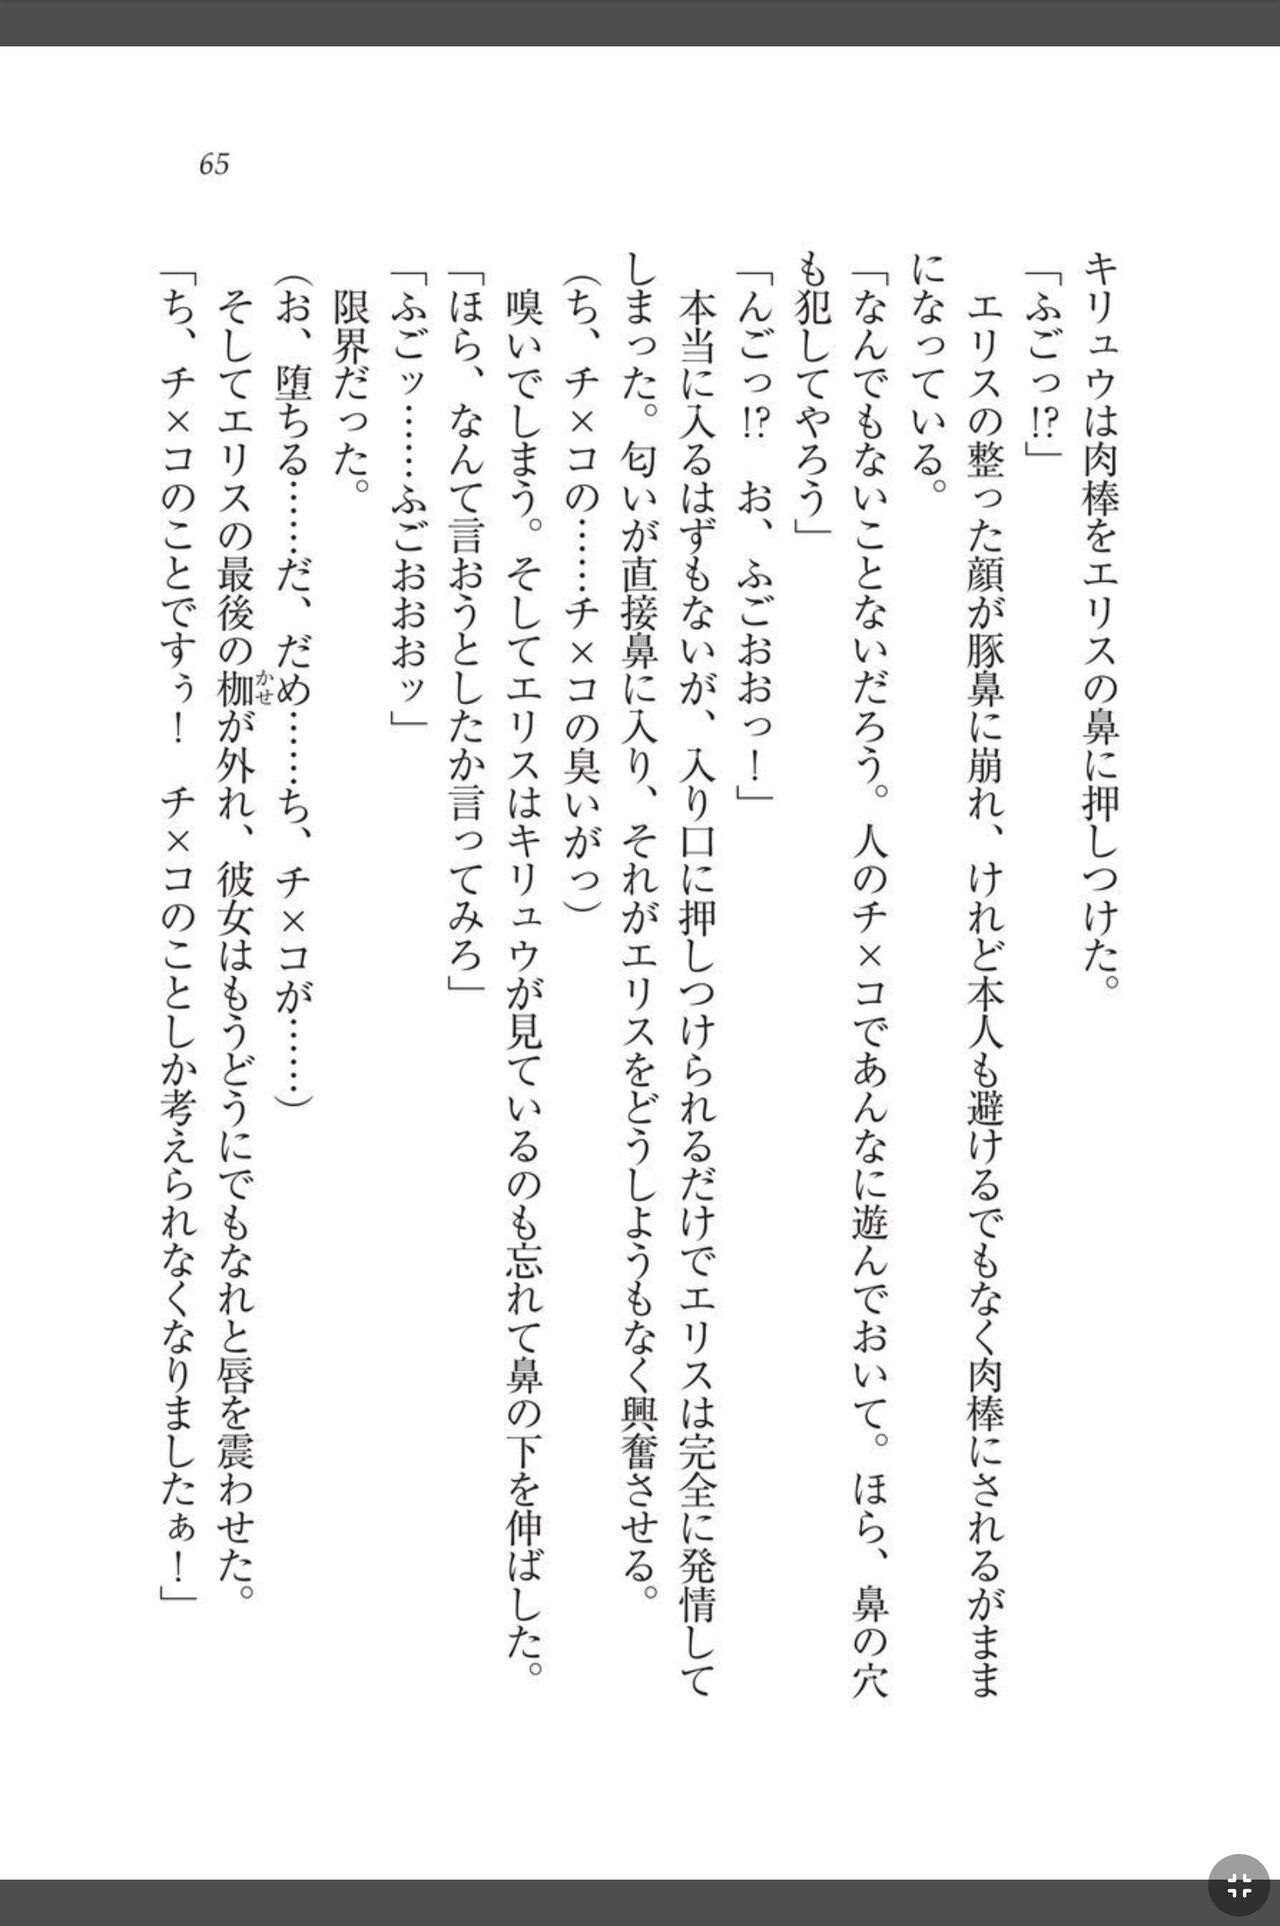 65
キリュウは肉棒をエリスの鼻に押しつけた。
「ふごっ!?」
エリスの整った顔が豚鼻に崩れ、けれど本人も避けるでもなく肉棒にされるがまま
になっている。
「なんでもないことないだろう。人のチ×コであんなに遊んでおいて。ほら、鼻の穴
も犯してやろう」
「んごっ!?　お、ふごおおっ！」
本当に入るはずもないが、入り口に押しつけられるだけでエリスは完全に発情して
しまった。匂いが直接鼻に入り、それがエリスをどうしようもなく興奮させる。
（ち、チ×コの……チ×コの臭いがっ）
嗅いでしまう。そしてエリスはキリュウが見ているのも忘れて鼻の下を伸ばした。
「ほら、なんて言おうとしたか言ってみろ」
「ふごッ……ふごおおおッ」
限界だった。
（お、堕ちる……だ、だめ……ち、チ×コが……）
そしてエリスの最後の枷かせが外れ、彼女はもうどうにでもなれと唇を震わせた。
「ち、チ×コのことですぅ！　チ×コのことしか考えられなくなりましたぁ！」